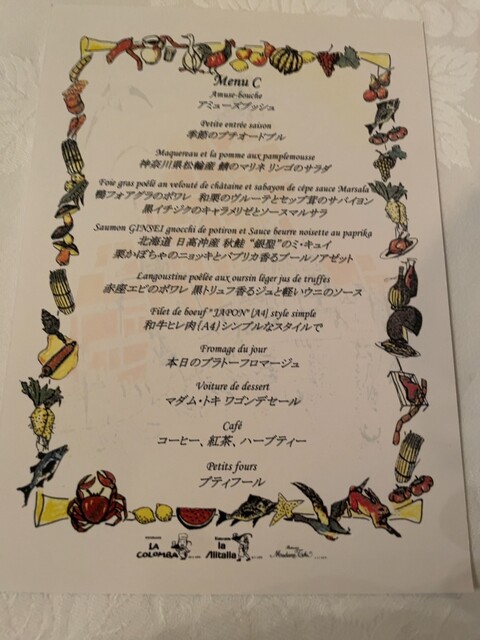 Menu C
Amuse-bouche
アミューズブッシュ
Petite entrée saison
季節のプチオードブル
Maquereau et la pomme aux pamplemousse
神奈川県松輪産 鯖のマリネ リンゴのサラダ
Foie gras poêlé an velouté de châtaine et sabayon de cépe sauce Marsala
鴨フォアグラのポワレ 和栗のヴルーテとセップ茸のサバイヨン
黒イチジクのキャラメリゼとソースマルサラ
Saumon GINSEI gnocchi de potiron et Sauce beurre noisette au paprika
北海道 日高沖産 秋鮭 “銀聖”のミ・キュイ
栗かぼちゃのニョッキとパプリカ香るブールノアゼット
Langoustine poêlée aux oursin léger jus de truffes
赤座エビのポワレ 黒トリュフ香るジュと軽いウニのソース
Filet de boeuf "JAPON" {A4} style simple
和牛ヒレ肉{A4}シンプルなスタイルで
Fromage du jour
本日のプラトーフロマージュ
Voiture de dessert
マダム・トキ ワゴンデセール
Café
コーヒー、紅茶、ハーブティー
Petits fours
プティフール
LA COLOMBA
la Alitalia
Madame Toki